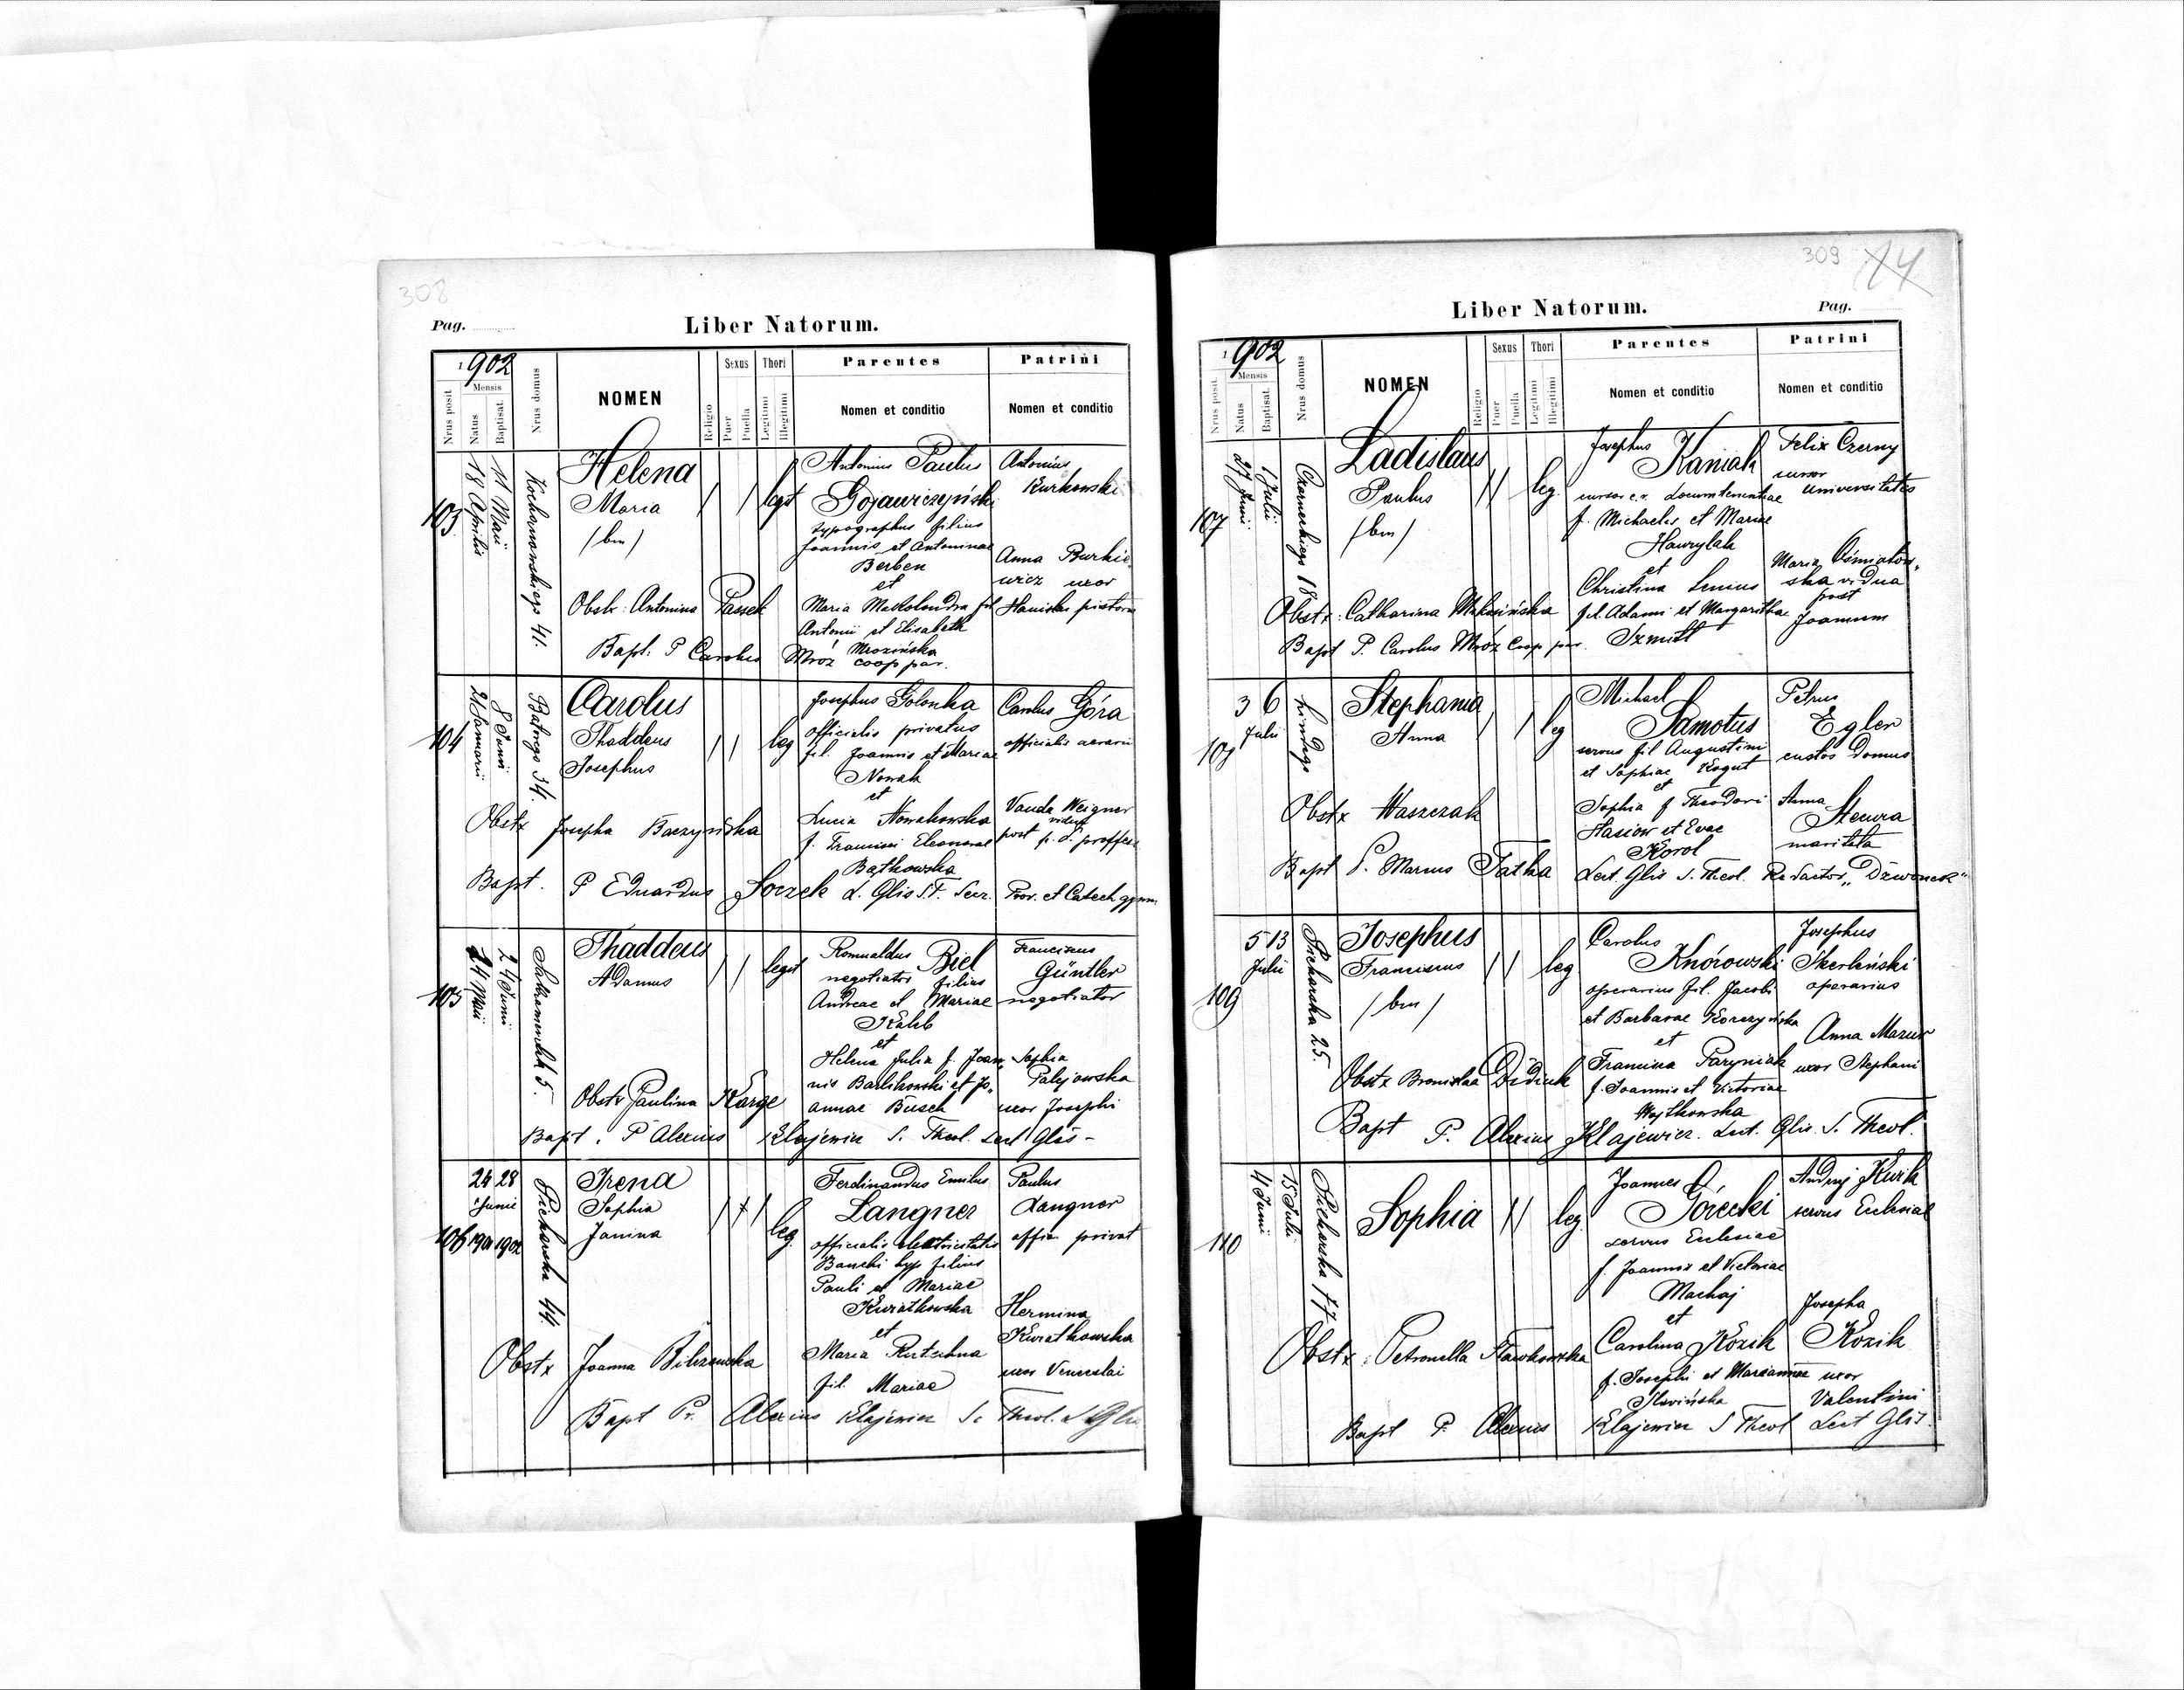 308
Pag.
Liber Natorum.
1902
Nrus posit.
Mensis
Natus
Baptisat.
Nrus domus
NOMEN
Religio
Sexus
Puer
Puella
Thori
Legitimi
Illegitimi
Parentes
Nomen et conditio
Patrini
Nomen et conditio
103
18 Aprilis
11 Maii
Kochanowskiego 41.
Helena
Maria
/bm/
legt
Antonius Paulus
Gojawiczyński
typographus filius
Joannis et Antoninae
Berben
et
Antonii et Elisabeth
Mrozińska
Antonius
Kurkowski
Anna Burkie
wicz uxor
Stanislai pistoris
Obstr: Antonina Passek
Bapt: P Carolus Mróz coop par.
104
21 Januarii
8 Junii
Batorego 34.
Carolus
Thaddeus
Josephus
leg
Josephus Golonka
officialis privatus
fil. Joannis et Mariae
Nowak
et
Lucia Nowakowska
f. Francisci Eleonorae
Bątkowska
Carolus Góra
officialis aerarii
Vanda Weigner
vidua
post p. d. proffess
Obstx Josepha Baczyńska
Bapt. P Eduardus Soczek L. Glis S.T. Secr. Prov. et Catech gymn
105
24 Maii
24 Junii
Sakramentek 5.
Thaddeus
Adamus
legit
Romualdus Biel
negotiator filius
Andreae et Mariae
Kaleb
et
Helena Julia f. Joan„
nis Bartikowski et Jo„
annae Busch
Franciscus
Güntler
negotiator
Sophia
Palejowska
uxor Josephi
Obstx Paulina Karge
Bapt. P Alexius Klajewicz S. Theol. Lect Glis -
106
24 28
Junii
1901 1902
Piekarska 44.
Irena
Sophia
Janina
leg.
Ferdinandus Emilus
Langner
officialis electricitatis
Banchi hyp filius
Pauli et Mariae
Kwiatkowska
et
Maria Rutschna
fil. Mariae
Paulus
Langner
offic. privat
Hermina
Kwiatkowska
uxor Venceslai
Obstx Joanna Bilczewska
Bapt Pr. Alexius Klajewicz S. Theol. L Glis
309
14
Liber Natorum.
Pag.
1902
Nrus posit.
Mensis
Natus
Baptisat.
Nrus domus
NOMEN
Religio
Sexus
Puer
Puella
Thori
Legitimi
Illegitimi
Parentes
Nomen et conditio
Patrini
Nomen et conditio
107
27 Junii
Julii
Czarneckiego 18
Ladislaus
Paulus
/bm/
leg.
Josephus
Kaniak
cursor c.r. Locumtenentiae
f. Michaelis et Mariae
Hawrylak
et
Christina Lenius
fil. Adami et Margarithae
Szmitt
Felix Czerny
cursor
universitatis
Maria Ośmiałow„
ska vidua
post
Joannem
Obstx: Catharina
Bapt P. Carolus Mróz Coop par.
108
3 6
Julii
Lindego
Stephania
Anna
leg
Michael
Samotus
servus fil Augustini
et Sophiae Kogut
et
Sophia f Theodori
Hasiow et Evae
Korol
Petrus
Egler
custos domus
Anna
Stecura
maritata
Obstx Waszczak
Bapt P. Marcus Fatka Lect. Glis S. Theol. Redactor „Dzwonek"
109
5 13
Julii
Piekarska 25.
Josephus
Franciscus
/bm/
leg
Carolus
Knórowski
operarius fil. Jacobi
et Barbarae Korczyńska
et
Francisca Paryniak
f. Joannis et Victoriae
Wojtkowska
Josephus
Skerleński
operarius
Anna Mazur
uxor Stephani
Obstx Bronislaa Didiuk
Bapt P. Alexius Klajewicz. Lect. Glis. S. Theol.
110
4 Junii
15 Julii
Piekarska 77
Sophia
leg
Joannes
Górecki
servus Ecclesiae
f. Joannis et Victoriae
Machaj
et
Carolina Kozik
f. Josephi et Mariannae
Slovińska
Andrej Kurk
servus Ecclesiae
Josepha
Kozik
uxor
Valentini
Obstx: Petronella Sławkowska
Bapt P. Alexius Klajewicz S Theol Lect Glis.